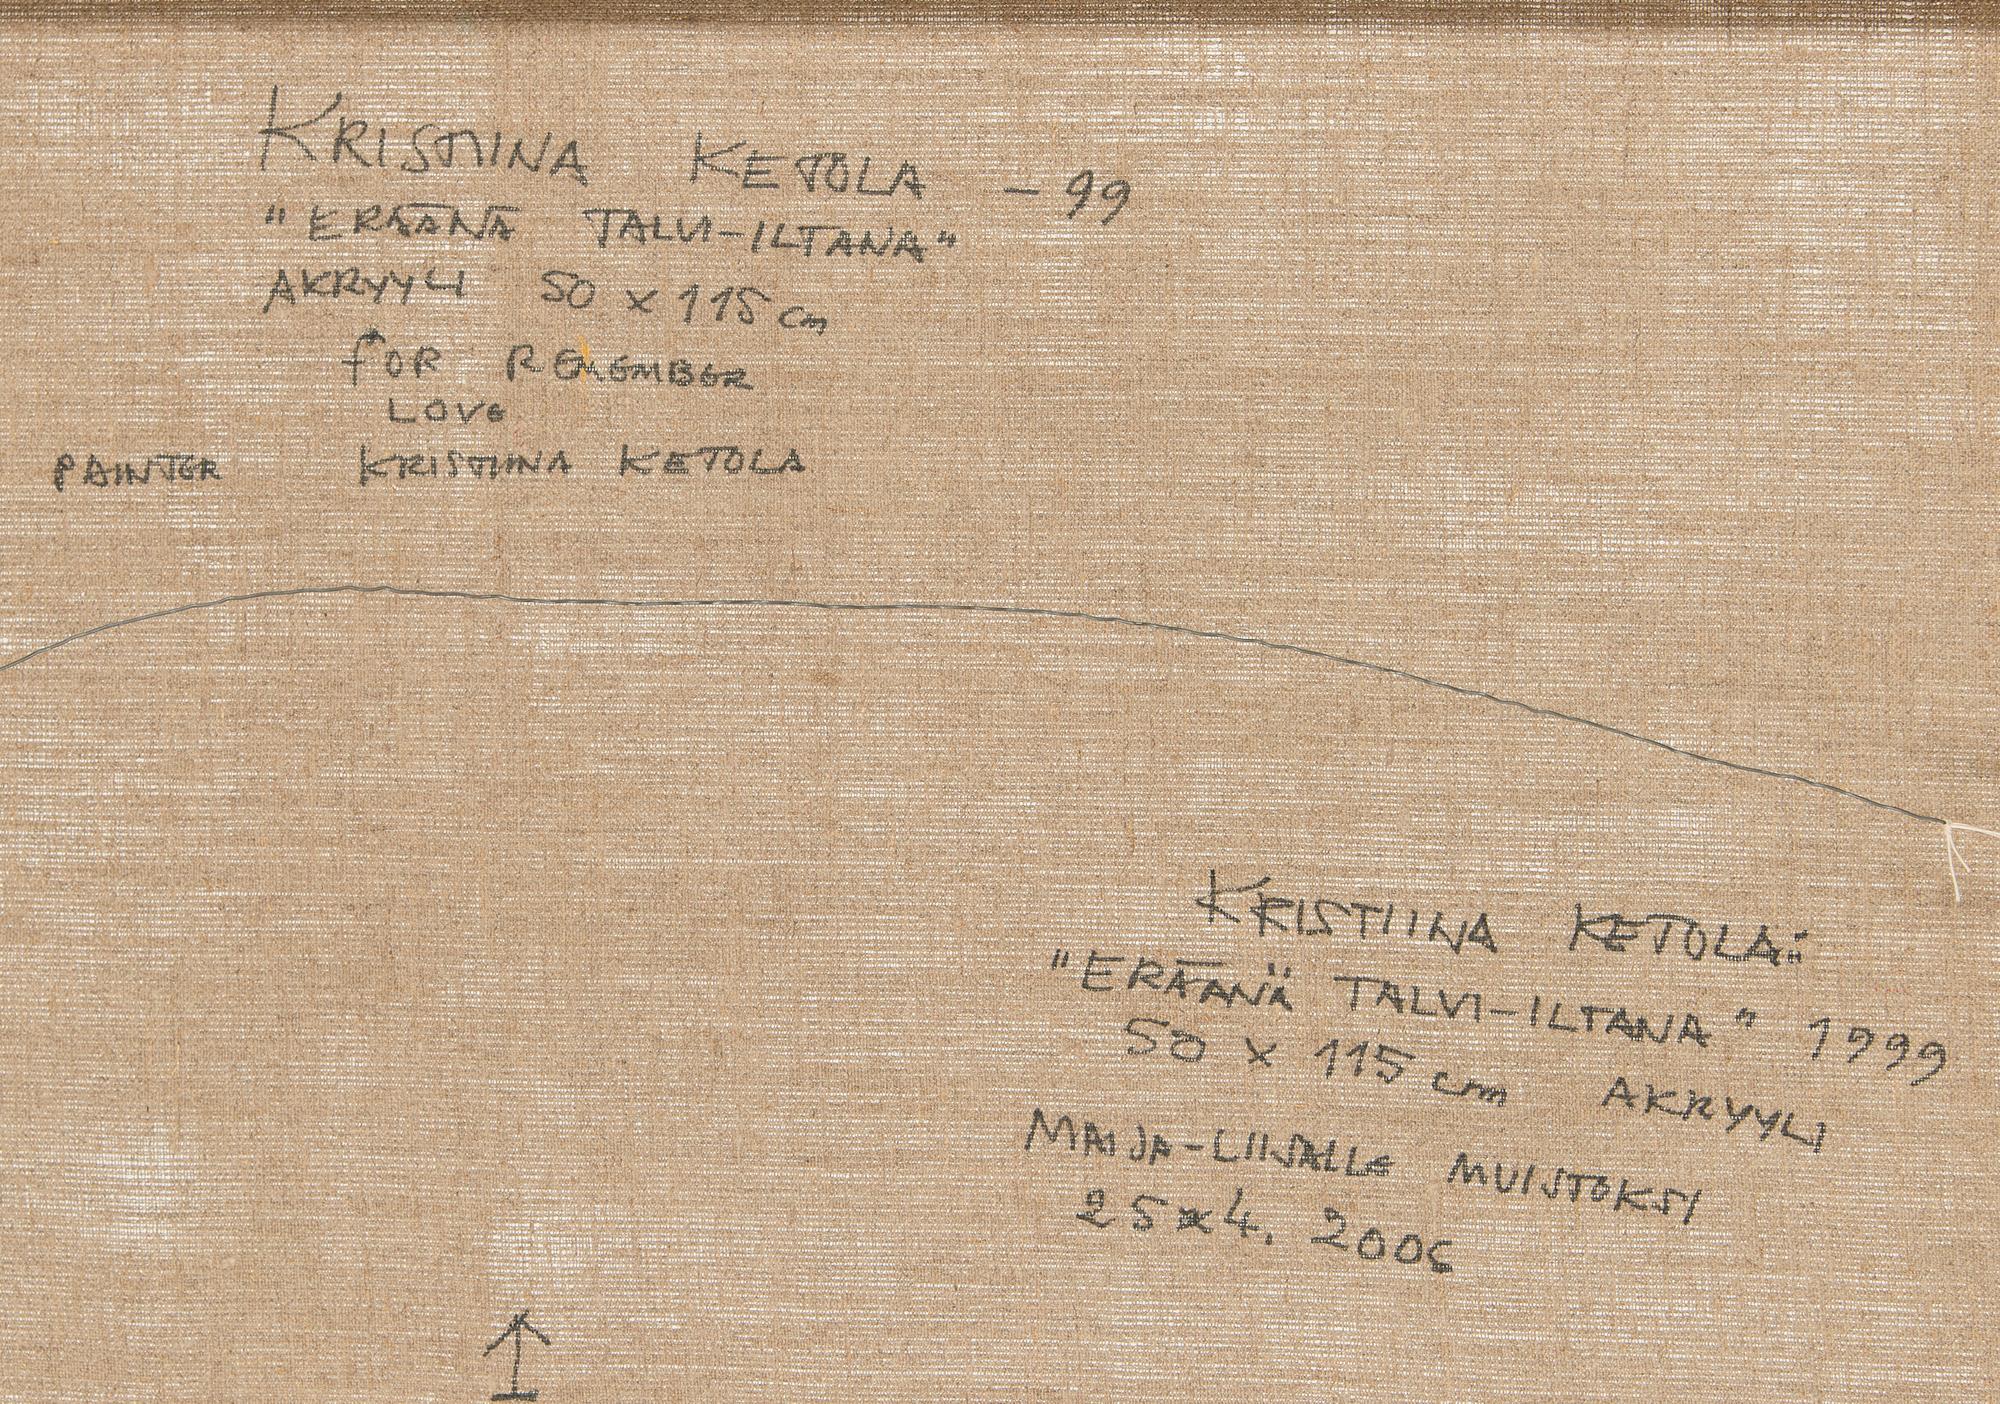 KRISTIINA KETOLA – 99
"ERÄÄNÄ TALVI-ILTANA"
AKRYYLI 50 x 115 cm
fOR REMEMBER
LOVE
PAINTER KRISTIINA KETOLA
KRISTIINA KETOLA:
"ERÄÄNÄ TALVI-ILTANA" 1999
50 x 115 cm AKRYYLI
MAIJA-LIISALLE MUISTOKSI
25.4. 2006